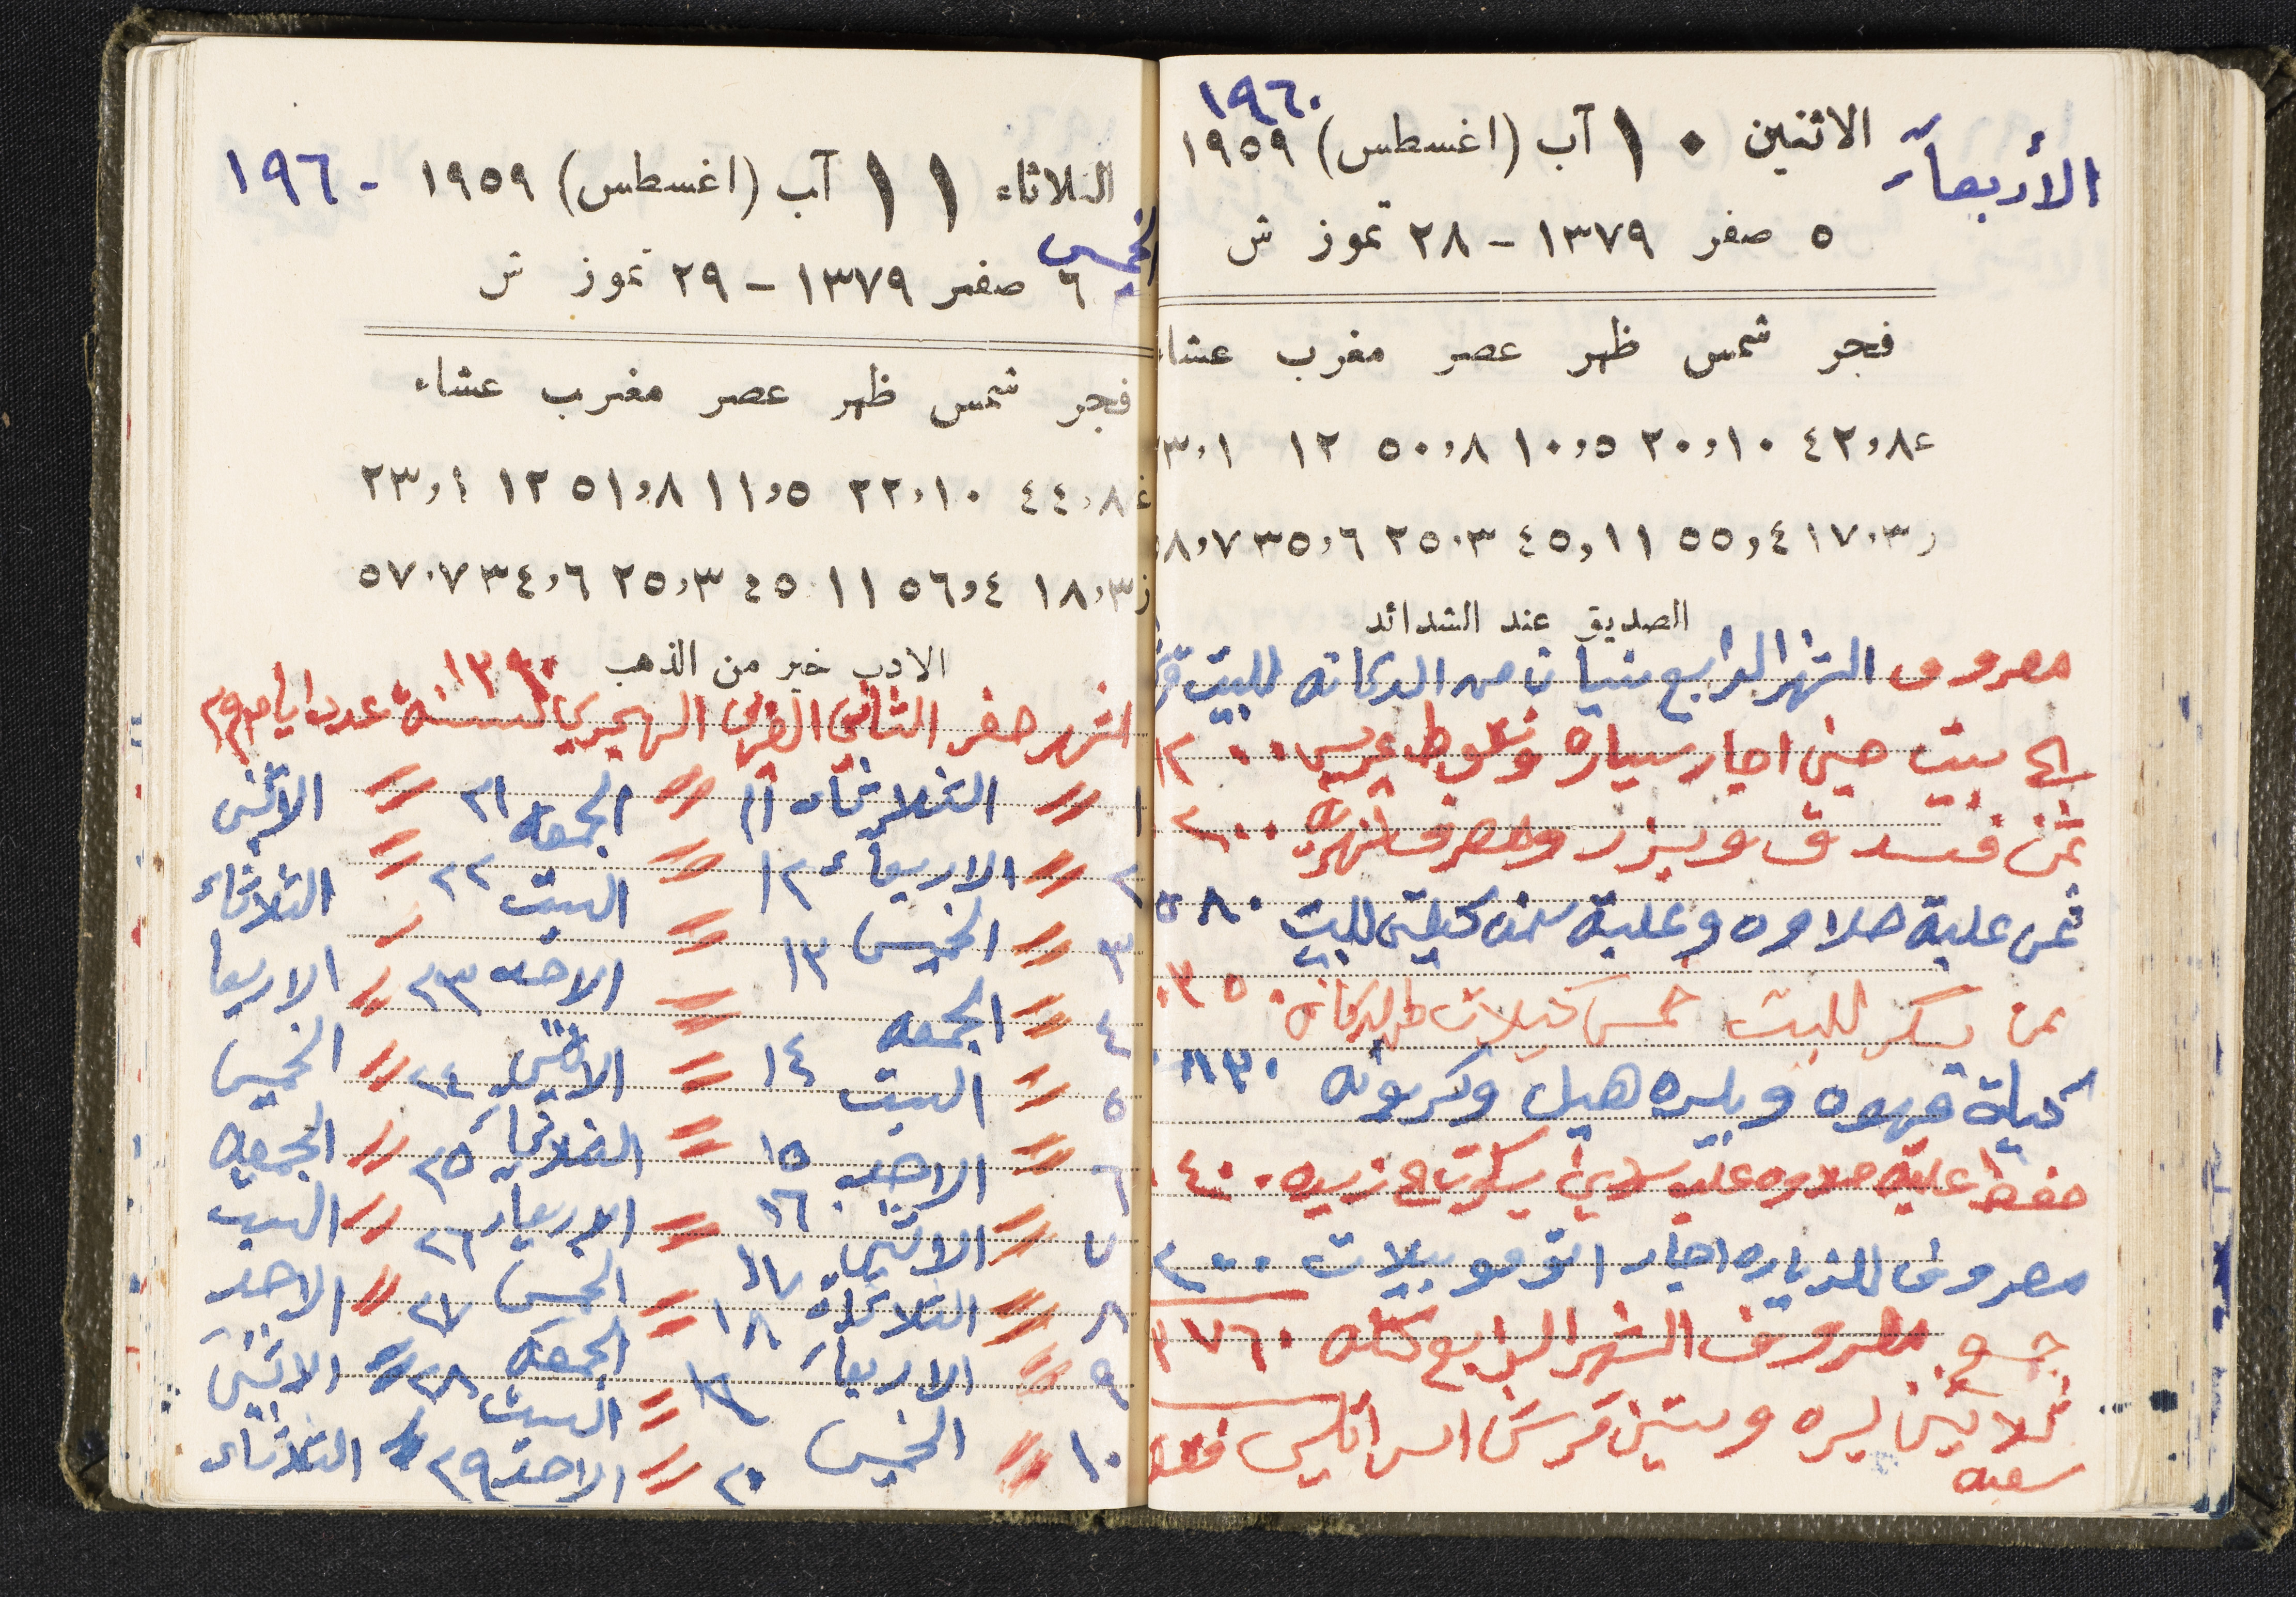 ١٩٦٠
الأربعاء الاثنين ١٠ آب (اغسطس) ١٩٥٩
٥ صفر ١٣٧٩ - ٢٨ تموز ش
فجر شمس ظهر عصر مغرب عشاء
ع ٤٢،٨ ٢٠،١٠ ١٠،٥ ٥٠،٨ ١٢ ٣،١
ز ١٧،٣ ٥٥،٤ ٤٥،١١ ٢٥،٣ ٣٥،٦ ٨،٧
الصديق عند الشدائد
مصروف الشهر الرابع نيسان من الدكانه للبيت
الى بيت حنى اجار سياره ونقوط عريس ٠٠
ثمن فسدق وبزر ومصرف ٦٠٠
ثمن علبة حلاوه وعلبة سمنه كيلتين للبيت ٥٨٠
ثمن سكر للبيت خمس كيلات ٣٥٠
كيلة قهوه وبليره هيل وكربونه ٨٣٠
علبة حلاوه علب سردين بسكوت زبده ٤٠٠
مصروف للزياره اجار اتوموبيلات ٢٠٠
جمع مصروف الشهر الرابع كله ٣٧٦٠
سبعه ثلاثين ليره وستين قرش اسرائيلي فقط
الثلاثاء ١١ آب (اغسطس) ١٩٥٩ - ١٩٦
الخميس
٦ صفر ١٣٧٩ - ٢٩ تموز ش
فجر شمس ظهر عصر مغرب عشاء
ع ٤٤،٨ ٢٢،١٠ ١١،٥ ٥١،٨ ١٢ ٢٣،١
ز ١٨،٣ ٥٦،٤ ٤٥،١١ ٢٥،٣ ٣٤،٦ ٥٧،٧
الادب خير من الذهب
الشهر صفر الثاني العربي الهجري لسنة ١٣٩٠ عدد ايامه ٢٩
١ " الثلاثاء ١١ " الجمعه ٢١ " الاثنين
٢ " الاربعاء ١٢ " السبت ٢٢ " الثلاثاء
٣ " الخميس ١٣ " الاحد ٢٣ " الاربعا
٤ " الجمعه ١٤ " الاثنين ٢٤ " الخميس
٥ " السبت ١٥ " الثلاثاء ٢٥ " الجمعه
٦ " الاحد ١٦ " الاربعاء ٢٦ " السبت
٧ " الاثنين ١٧ " الخميس ٢٧ " الاحد
٨ " الثلاثاء ١٨ " الجمعه ٢٨ " الاثنين
٩ " الاربعاء ١٩ " السبت ٢٩ " الثلاثاء
١٠ " الخميس ٢٠ " الاحد